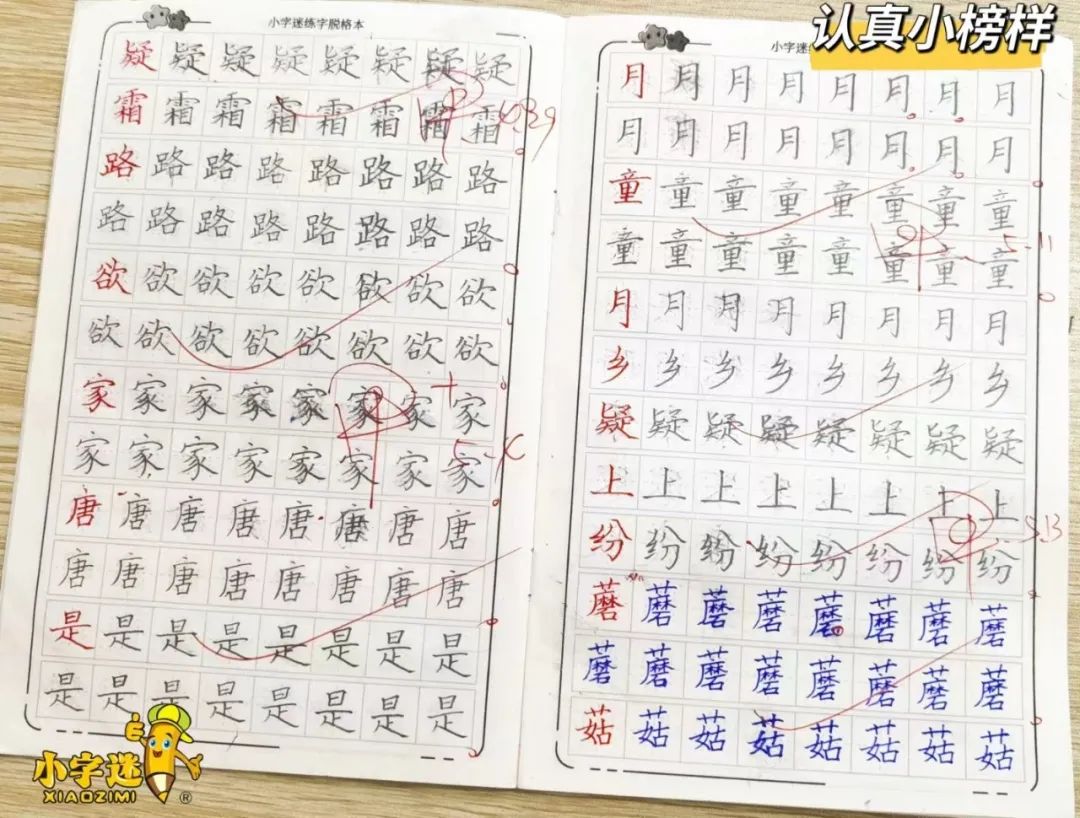 小字迷练字脱格本
疑疑疑疑疑疑疑疑
霜霜霜霜霜霜霜霜
路路路路路路路路
路路路路路路路路
欲欲欲欲欲欲欲欲
欲欲欲欲欲欲欲欲
家家家家家家家家
家家家家家家家家
唐唐唐唐唐唐唐唐
唐唐唐唐唐唐唐唐
是是是是是是是是
是是是是是是是是
小字迷
XIAOZIMI ®
认真小榜样
小字迷练
月月月月月月月月
月月月月月月月月
童童童童童童童童
童童童童童童童童
5-11
月月月月月月月月
乡乡乡乡乡乡乡乡
疑疑疑疑疑疑疑疑
上上上上上上上上
纷纷纷纷纷纷纷纷
蘑蘑蘑蘑蘑蘑蘑蘑
蘑蘑蘑蘑蘑蘑蘑蘑
菇菇菇菇菇菇菇菇